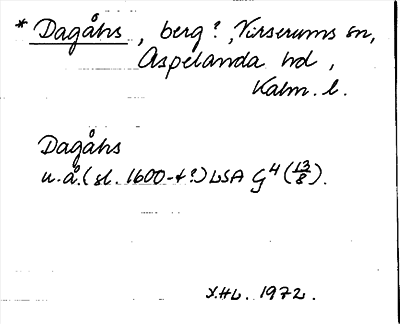 * Dagåhs, berg?, Virserums sn,
Aspelanda hd,
Kalm. l.
Dagåhs
u.å. (sl. 1600-t?) LSA G4 (13/8).
I.HL. 1972.